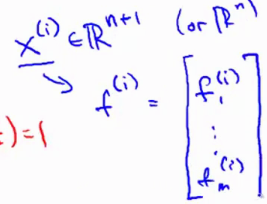 x^(i) ∈ ℝ^(n+1) (or ℝ^n)
f^(i) = [f_1^(i) ⋮ f_m^(i)]
) = 1